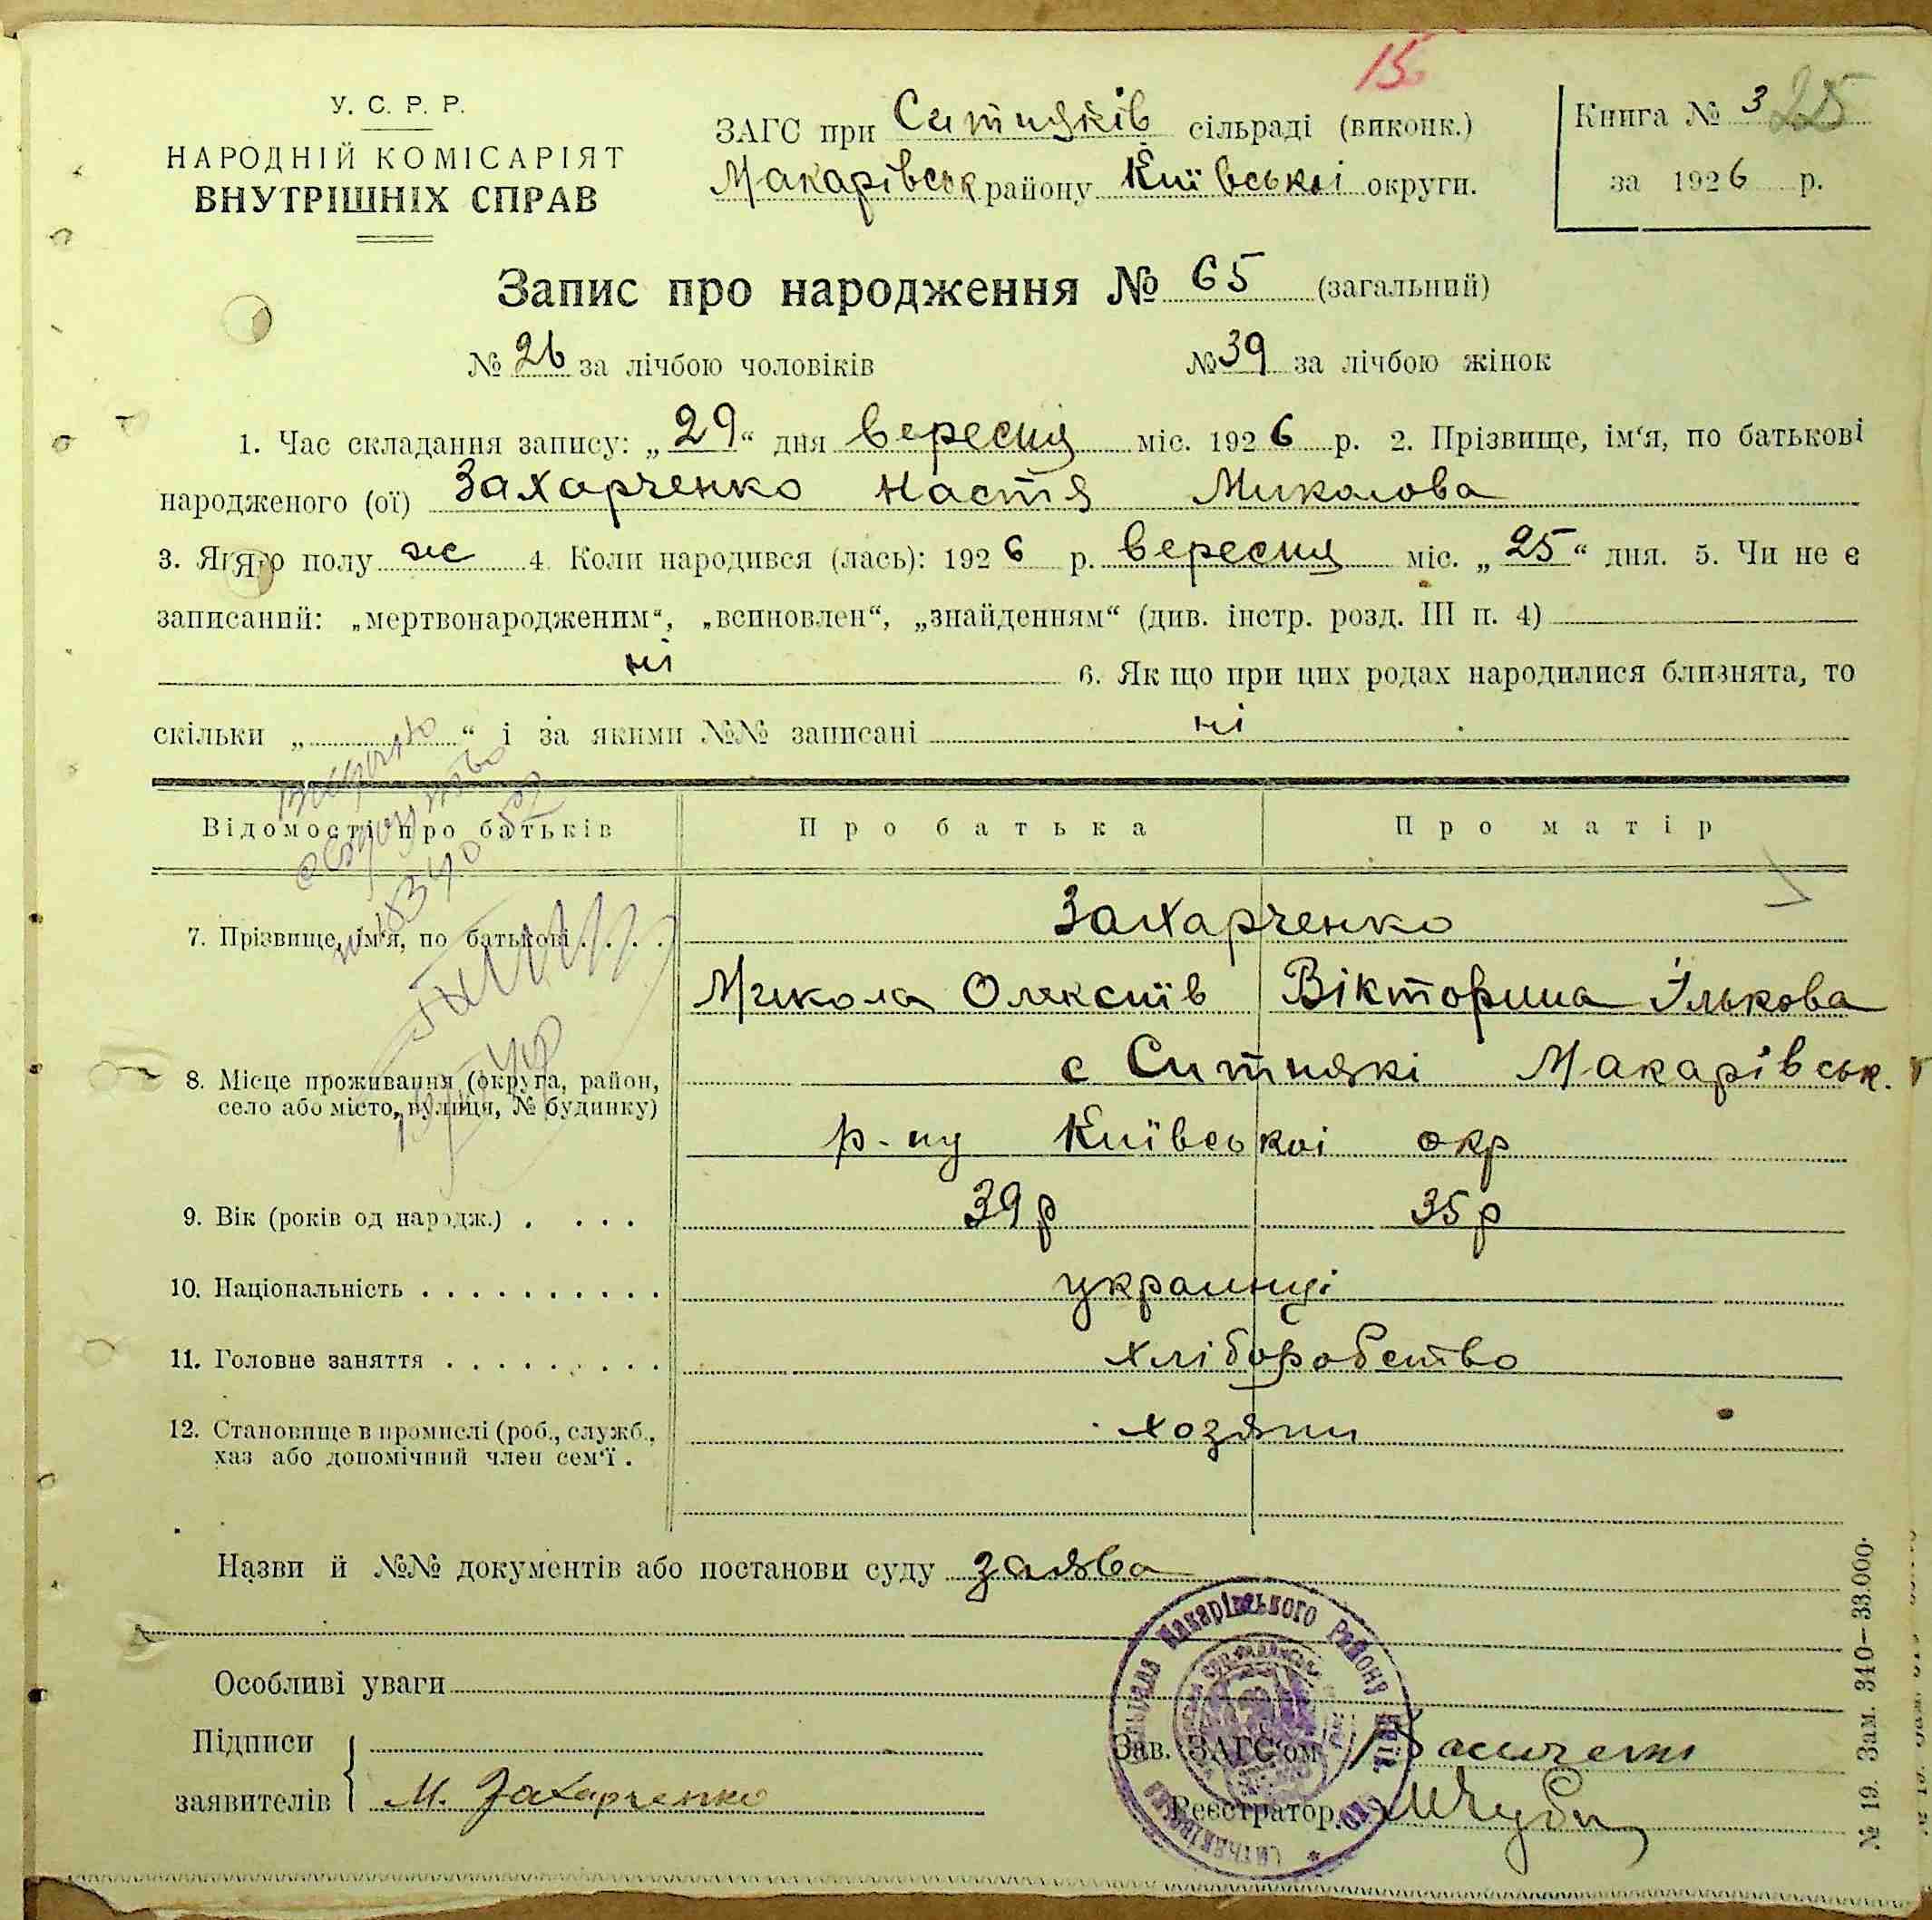 15
У. С. Р. Р.
НАРОДНІЙ КОМІСАРІЯТ
ВНУТРІШНІХ СПРАВ
ЗАГС при Ситняків сільраді (виконк.)
Макарівськ району Київської округи.
Книга № 3 25
за 1926 р.
Запис про народження № 65 (загальний)
№ 26 за лічбою чоловіків № 39 за лічбою жінок
1. Час складання запису: „29“ дня вересня міс. 1926 р. 2. Прізвище, ім‘я, по батькові
народженого (ої) Захарченко Настя Миколова
3. Якого полу ж 4. Коли народився (лась): 1926 р. вересня міс. „25“ дня. 5. Чи не є
записаний: „мертвонародженим“, „всиновлен“, „знайденням“ (див. інстр. розд. III п. 4)
ні 6. Як що при цих родах народилися близнята, то
скільки „ “ і за якими №№ записані ні
Відомості про батьків Про батька Про матір
7. Прізвище, ім‘я, по батькові . . . . Захарченко
Микола Олексиїв Вікторина Ількова
8. Місце проживання (округа, район, с Ситнякі Макарівськ.
село або місто, вулиця, № будинку)
р-ну Київської окр
9. Вік (років од народж.) . . . . 39 р 35 р
10. Національність . . . . . . . . . . украинці
11. Головне заняття . . . . . . . . . хліборобство
12. Становище в промислі (роб., служб., хозяин
хаз або допомічний член сем‘ї .
Назви й №№ документів або постанови суду заява
Особливі уваги
Підписи
заявителів М. Захарченко
Зав. ЗАГС‘ом
Реєстратор
Макарівського Району
№ 19. Зам. 340—33.000.